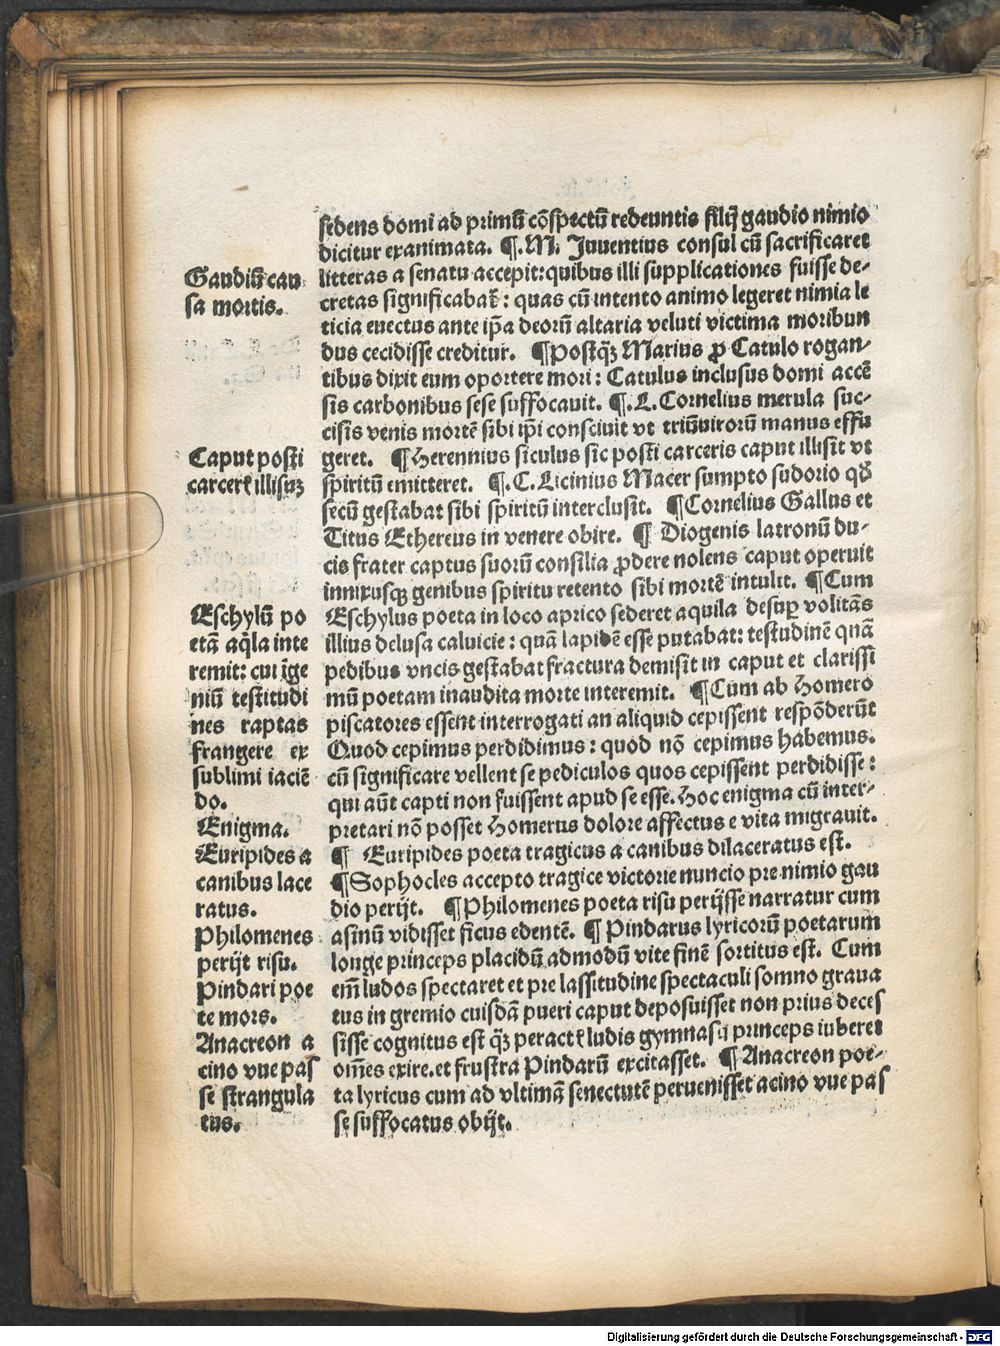 sedens domi ad primū cōspectū redeuntis filij gaudio nimio
dicitur exanimata. ¶.M. Juuentius consul cū sacrificaret
litteras a senatu accepit: quibus illi supplicationes fuisse de⸗
cretas significabat᷑: quas cū intento animo legeret nimia le
ticia euectus ante ip̄a deorū altaria veluti victima moribun
dus cecidisse creditur. ¶Postqꝫ Marius ꝓ Catulo rogan⸗
tibus dixit eum oportere mori: Catulus inclusus domi accē
sis carbonibus sese suffocauit. ¶.L.Cornelius merula suc⸗
cisis venis mortē sibi ip̄i consciuit vt triūuirorū manus effu
geret. ¶Herennius siculus sic posti carceris caput illisit vt
spiritū emitteret. ¶.C.Licinius Macer sumpto sudorio qđ
secū gestabat sibi spiritū interclusit. ¶Cornelius Gallus et
Titus Ethereus in venere obire. ¶ Diogenis latronū du⸗
cis frater captus suorū consilia ꝓdere nolens caput operuit
innixusqꝫ genibus spiritu retento sibi mortē intulit. ¶Cum
Eschylus poeta in loco aprico sederet aquila desuꝑ volitās
illius delusa caluicie: quā lapidē esse putabat: testudinē quā
pedibus vncis gestabat fractura demisit in caput et clarissi
mū poetam inaudita morte interemit. ¶Cum ab Homero
piscatores essent interrogati an aliquid cepissent respōderūt
Quod cepimus perdidimus: quod nō cepimus habemus.
cū significare vellent se pediculos quos cepissent perdidisse:
qui aūt capti non fuissent apud se esse. Hoc enigma cū inter⸗
pretari nō posset Homerus dolore affectus e vita migrauit.
¶ Euripides poeta tragicus a canibus dilaceratus est.
¶Sophocles accepto tragice victorie nuncio pre nimio gau
dio perijt. ¶Philomenes poeta risu perijsse narratur cum
asinū vidisset ficus edentē. ¶ Pindarus lyricorū poetarum
longe princeps placidū admodū vite finē sortitus est. Cum
em̄ ludos spectaret et pre lassitudine spectaculi somno graua
tus in gremio cuisdā pueri caput deposuisset non prius deces
sisse cognitus est qꝫ peractꝭ ludis gymnasij princeps iuberet
om̄es exire. et frustra Pindarū excitasset. ¶Anacreon poe⸗
ta lyricus cum ad vltimā senectutē peruenisset acino vue pas
se suffocatus obijt.
Gaudiū cau
sa mortis.
Caput posti
carcerꝭ illisuꝫ
Eschylū po
etā aq̇la inte
remit: cui īge
niū testitudi
nes raptas
frangere ex
sublimi iaciē
do.
Enigma.
Euripides a
canibus lace
ratus.
Philomenes
perijt risu.
Pindari poe
te mors.
Anacreon a
cino vue pas
se strangula
tus.
Digitalisierung gefördert durch die Deutsche Forschungsgemeinschaft - DFG